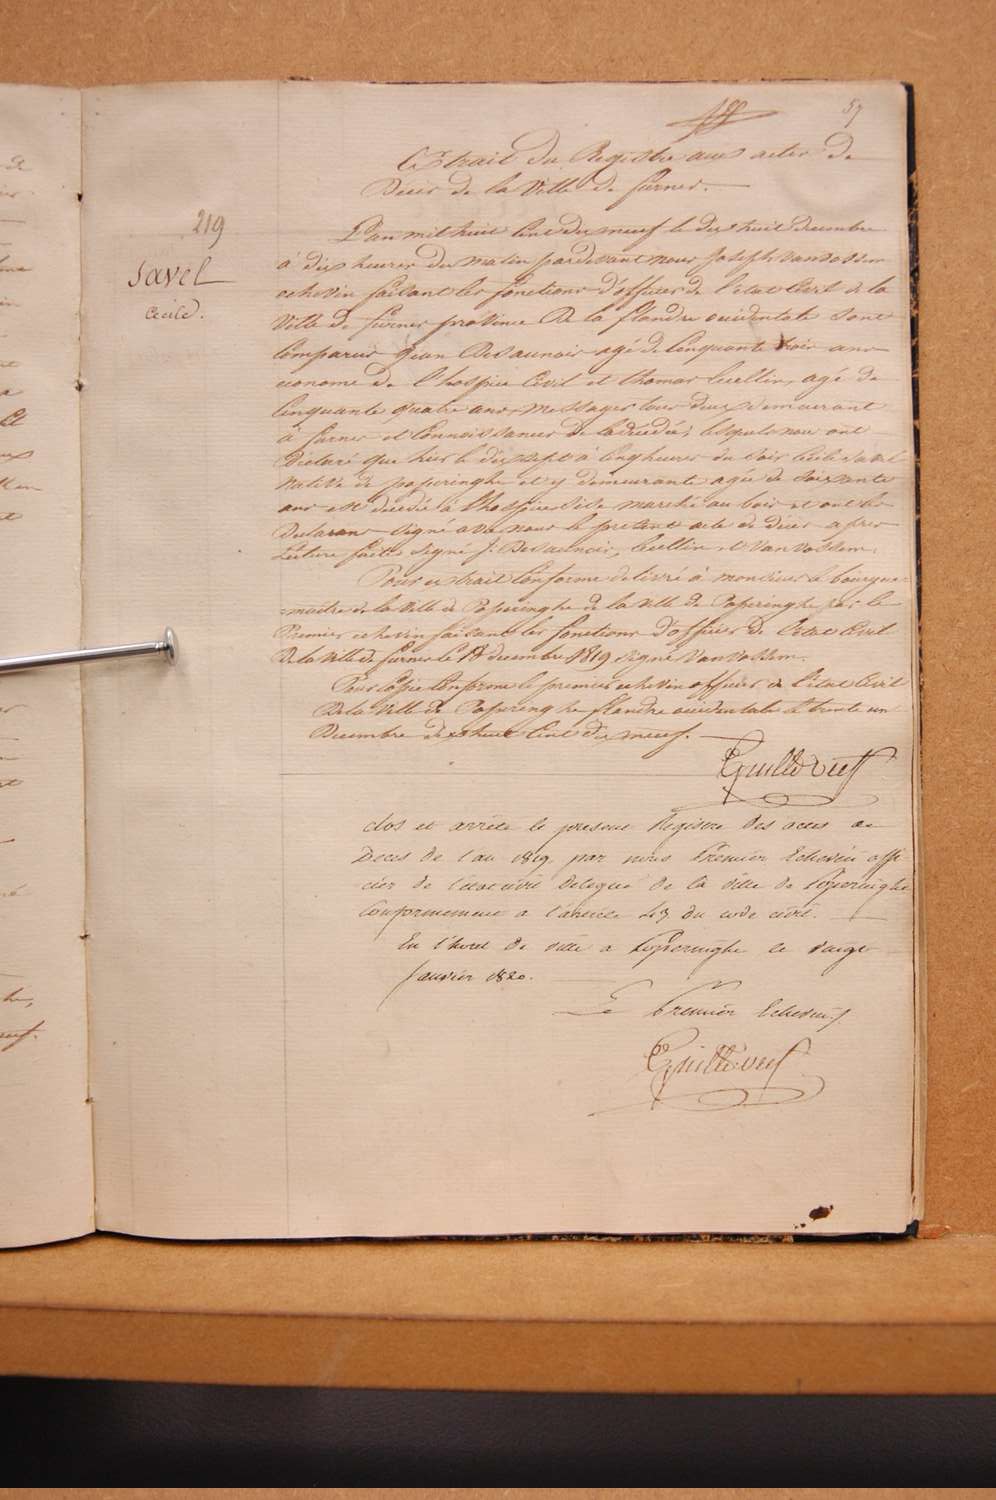 57
Extrait du Registre aux actes de
Décès de la Ville de furnes.
219
Savel
Cecile.
L'an mil huit Cent dix neuf le dix huit decembre
à dix heures du matin pardevant nous Joseph vanvossem
echevin faisant les fonctions d'officier de l'etat Civil de la
Ville de furnes province De la flandre occidentale sont
Comparus Jean Desaunoir agé de Cinquante trois ans
econome de l'hospice Civil et thomas Cuellin, agé de
Cinquante quatre ans, messager tous deux demeurant
à furnes et Connoissances de la dècèdée; lesquels nous ont
Déclaré que hier le dix sept à Cinq heures du soir Cecile Savel
Native de poperinghe et y demeurante agée de soixante
ans est décédée à l'hospice sise marché au bois et ont les
Declarans signé avec nous le present acte de décès après
Lecture faite signé J: Desaunoir, Cuellin et Vanvossem.
Pour extrait Conforme delivré à monsieur le bourgue=
=maître de la Ville de Poperinghe de la Ville de Poperinghe par le
Premier echevin faisant les fonctions d'officier de l'etat Civil
De la Ville de furnes le 18 decembre 1819 signé Vanvossem.
Pour Copie Conforme le premier echevin officier de l'état Civil
De la Ville de Poperinghe flandre occidentale le trente un
Decembre dix huit Cent dix neuf.
clos et arrêté le present Registre des actes de
Deces de l'an 1819 par nous Premier Echevin offi-
cier de l'etat civil delegué de la ville de Poperinghe
Conformement a l'article 43 du code civil.
En l'hotel de ville a Poperinghe le vingt
Janvier 1820.
Le Premier Echevin